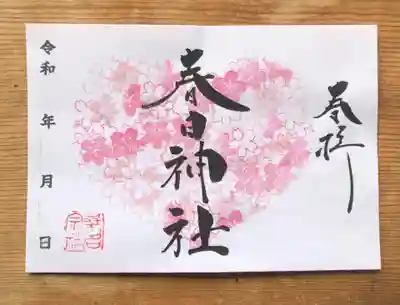 奉拝
春日神社
令和 年 月 日